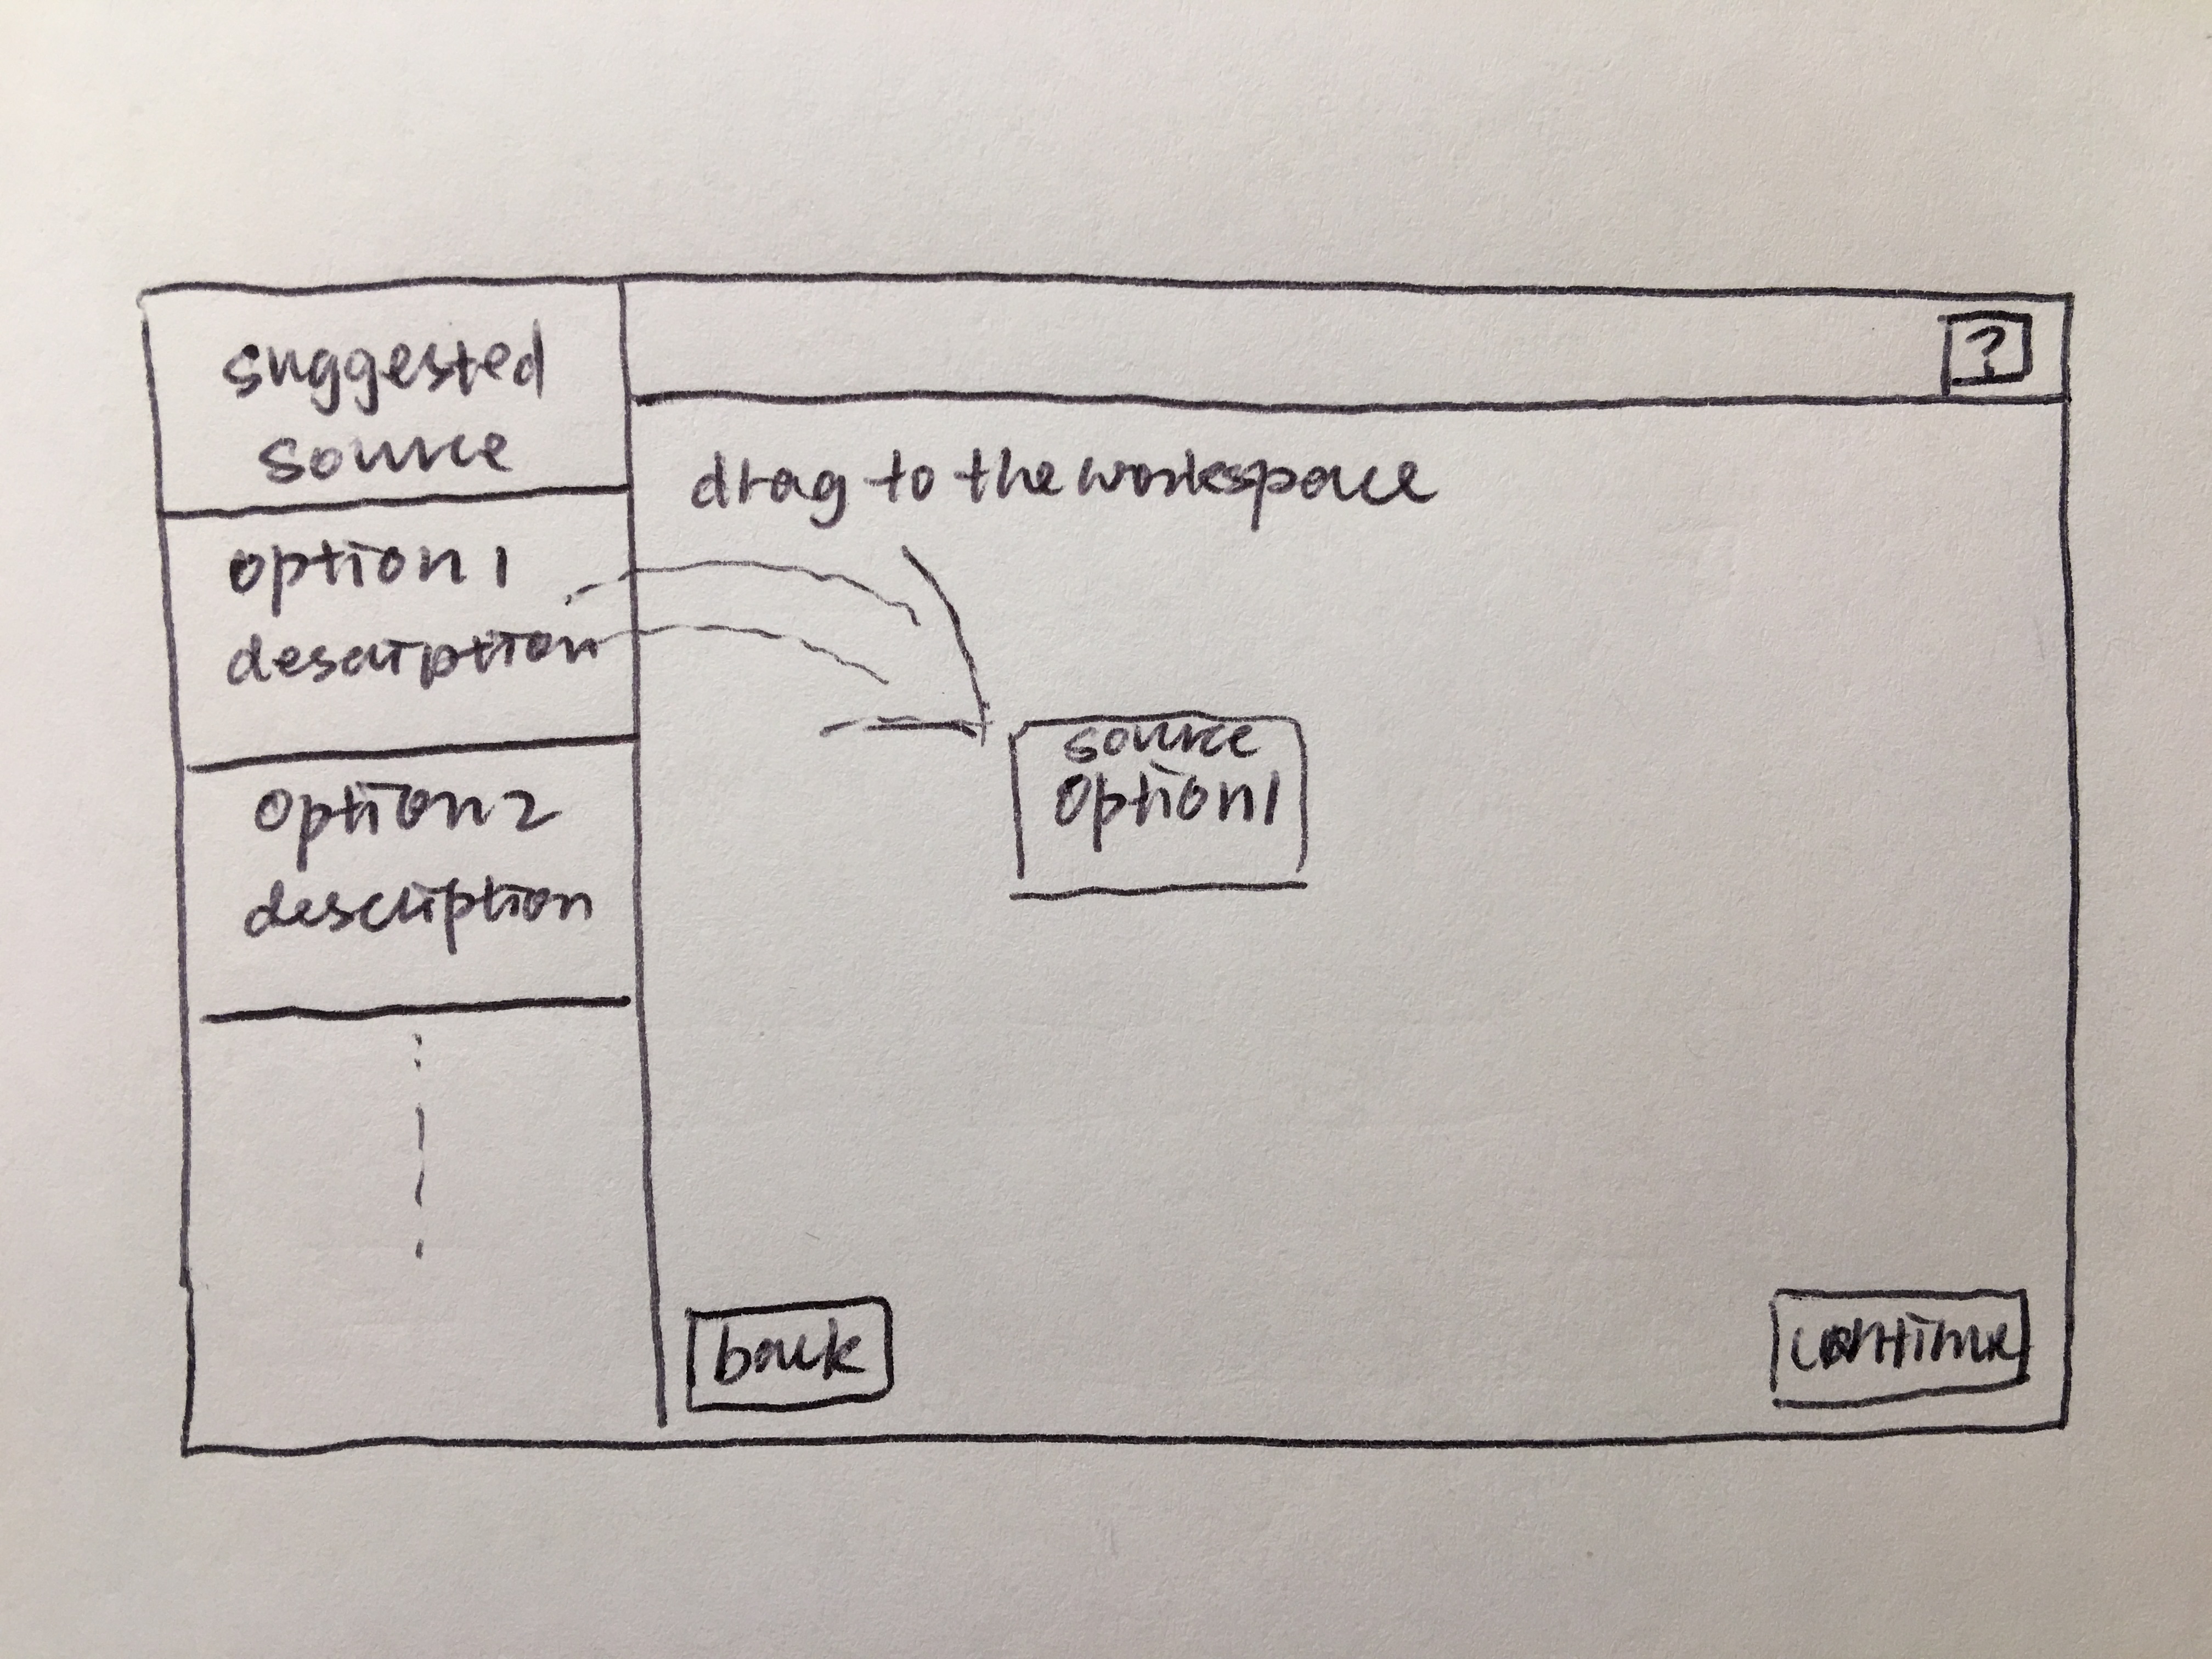 suggested
source
option 1
description
option 2
description
?
drag to the workspace
source
option 1
back
continue